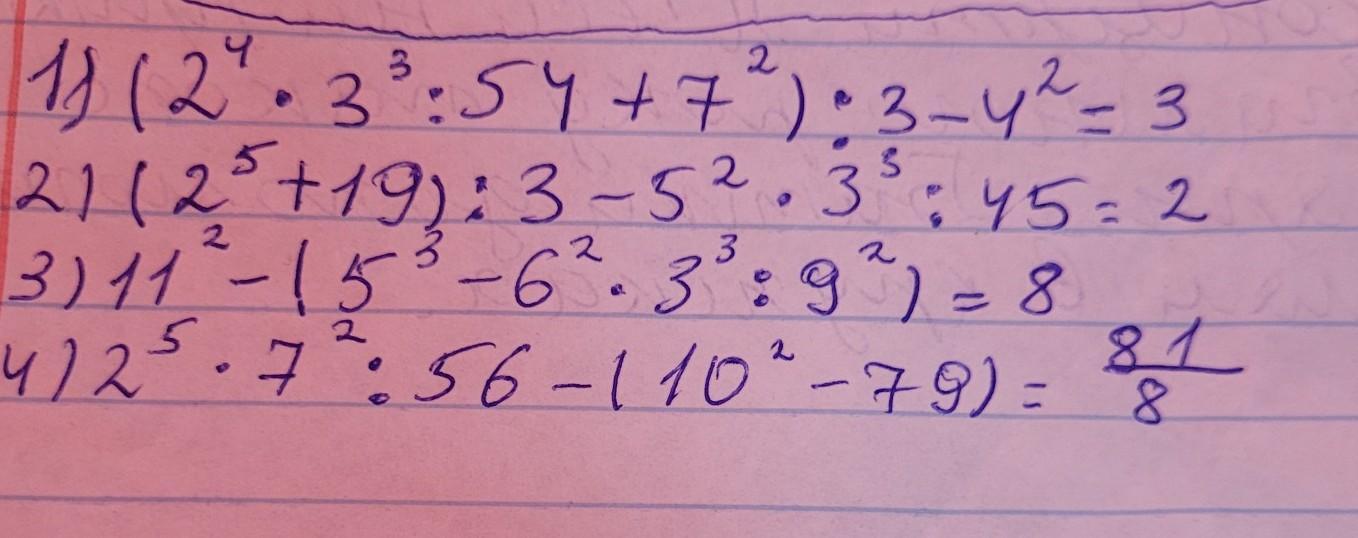 1) (2⁴ · 3³ : 54 + 7²) : 3 - 4² = 3
2) (2⁵ + 19) : 3 - 5² · 3³ : 45 = 2
3) 11² - (5³ - 6² · 3³ : 9²) = 8
4) 2⁵ · 7² : 56 - (10² - 79) = 81/8